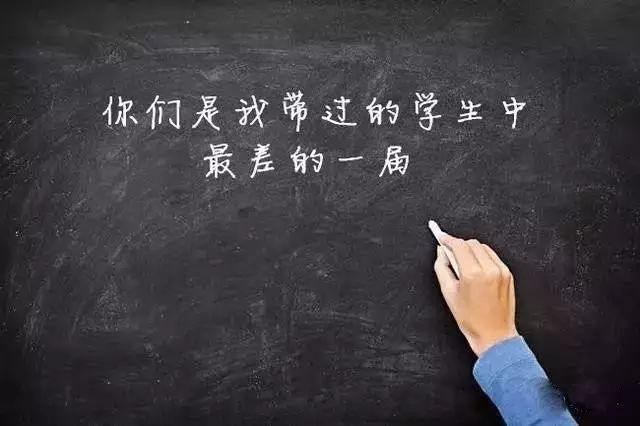 你们是我带过的学生中
最差的一届